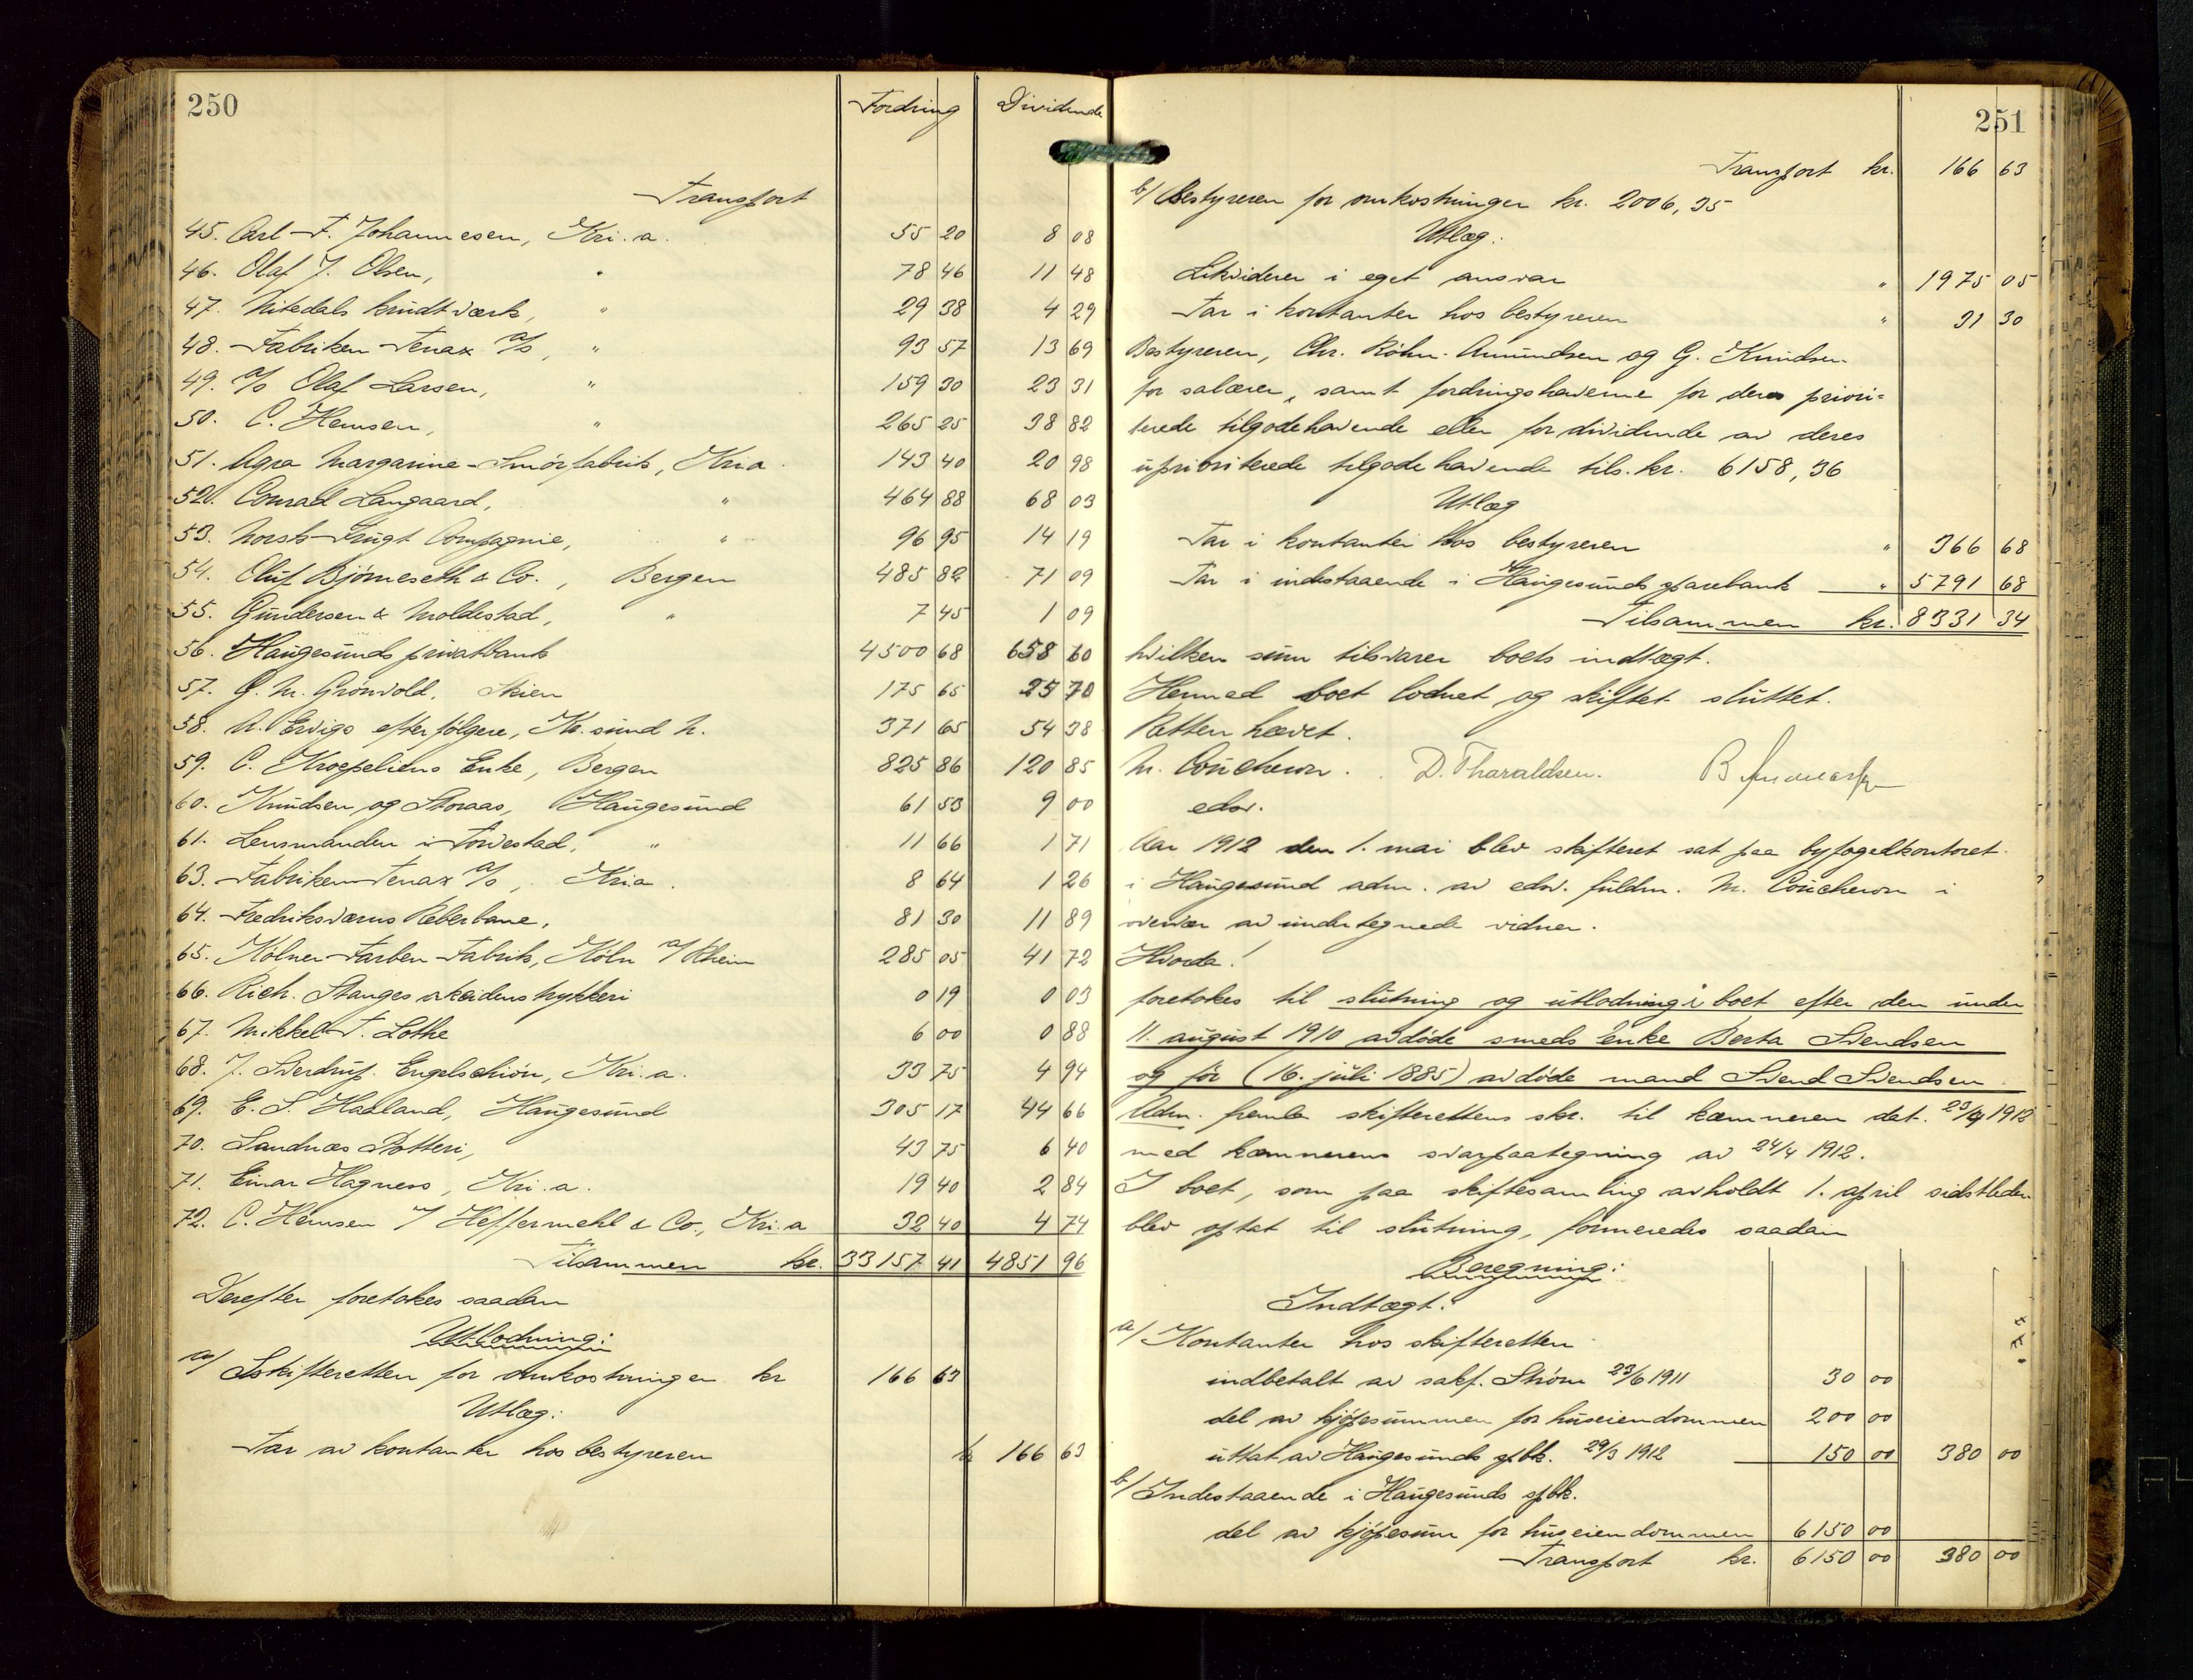 250
Fordring Dividende
Transport
45. Carl F. Johannesen, Kri.a. 55 20 8 08
46. Olaf J. Olsen, " 78 46 11 48
47. Nitedals krudtværk, " 29 38 4 29
48. Fabriken Tenax A/S, " 93 57 13 69
49. A/S Olaf Larsen, " 159 30 23 31
50. C. Hemsen, " 265 25 38 82
51. Agra Margarine-Smörfabrik, Kria. 143 40 20 98
52. Conrad Langaard, " 464 88 68 03
53. Norsk Frugt Compagnie, " 96 95 14 19
54. Oluf Bjørneseth & Co., Bergen 485 82 71 09
55. Gundersen & Moldestad, " 7 45 1 09
56. Haugesunds privatbank 4500 68 658 60
57. G. M. Grönvold, Skien 175 65 25 70
58. A. Ervigs efterfölgere, Kr.sund N. 371 65 54 38
59. C. Kroepeliens Enke, Bergen 825 86 120 85
60. Knudsen og Storaas, Haugesund 61 53 9 00
61. Lensmanden i Torvestad, " 11 66 1 71
63. Fabriken Tenax A/S, Kria. 8 64 1 26
64. Fredriksværns Reberbane, 81 30 11 89
65. Kölner Farben-Fabrik, Köln a/Rhein 285 05 41 72
66. Rich. Stanges akcidenstrykkeri 0 19 0 03
67. Mikkel T. Lothe 6 00 0 88
68. J. Sverdrup Engelschiön, Kri.a. 33 75 4 94
69. E. S. Haaland, Haugesund 305 17 44 66
70. Sandnæs Potteri, 43 75 6 40
71. Einar Hagness, Kri.a. 19 40 2 84
72. C. Hemsen / Heffermehl & Co., Kri.a 32 40 4 74
Tilsammen kr. 33157 41 4851 96
Derefter foretokes saadan
Utlodning:
a/ Skifteretten for omkostninger kr 166 63
Utlæg:
Tar av kontanter hos bestyreren kr 166 63
251
Transport kr. 166 63
b/ Bestyreren for omkostninger kr. 2006,35
Utlæg:
Likviderer i eget ansvar " 1975 05
Tar i kontanter hos bestyreren " 31 30
Bestyreren, Chr. Röhn-Amundsen og G. Knudsen
for salærer, samt fordringshaverne for deres priori-
terede tilgodehavende eller for dividende av deres
uprioriterede tilgodehavende tils. kr. 6158,36
Utlæg
Tar i kontanter hos bestyreren " 366 68
Tar i indestaaende i Haugesunds sparebank " 5791 68
Tilsammen kr. 8331 34
hvilken sum tilsvarer boets indtægt.
Hermed boet lodnet og skiftet sluttet.
Retten hævet.
M. Coucheron. D. Tharaldsen.
edsv.
Aar 1912 den 1. mai blev skifteret sat paa byfogedkontoret
i Haugesund adm. av edsv. fuldm. M. Coucheron i
overvær av undertegnede vidner.
Hvorda!
foretokes til slutning og utlodning i boet efter den under
11. august 1910 avdöde smeds Enke Berta Svendsen
og för (16. juli 1885) avdöde mand Svend Svendsen
Adm. fremla skifterettens skr. til kæmneren dat. 23/4 1912
med kæmnerens svarpaategning av 24/4 1912.
I boet, som paa skiftesamling avholdt 1. april sidstleden
blev optat til slutning, formeredes saadan
Beregning:
Indtægt:
a/ Kontanter hos skifteretten
indbetalt av sakf. Ström 23/6 1911 30 00
del av kjöpesummen for huseiendommen 200 00
uttat av Haugesunds spbk. 29/3 1912 150 00 380 00
b/ Indestaaende i Haugesunds spbk.
del av kjöpesum for huseiendommen 6150 00
Transport kr. 6150 00 380 00